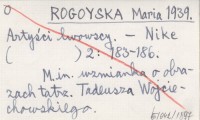 O ROGOYSKA Maria 1939.
Artyści lwowscy. - Nike
( ) 2: 183-186.
M.in. wzmianka o obra-
zach tatrz. Tadeusza Wojcie-
chowskiego.